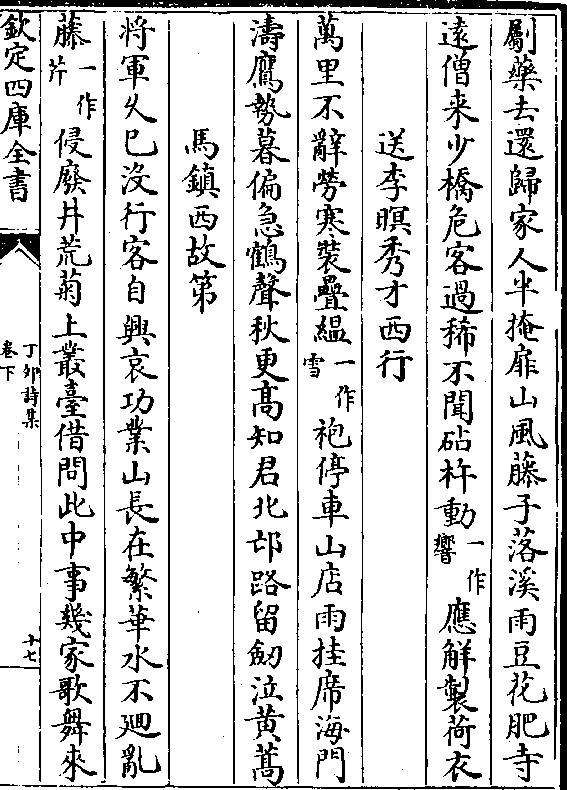 劚藥去還歸家人半掩扉山風藤子落溪雨豆花肥寺
逺僧来少橋危客過稀不聞砧杵動一作響應解製荷衣
送李暝秀才西行
萬里不辭勞寒裝疊緼一作雪袍停車山店雨挂席海門
濤鷹勢暮偏急鶴聲秋更髙知君北邙路留劒泣黄蒿
馬鎮西故第
将軍乆巳沒行客自興哀功業山長在繁華水不廻亂
藤一作芹侵廢井荒菊上叢臺借問此中事幾家歌舞來
欽定四庫全書
丁卯詩集
卷下
十七